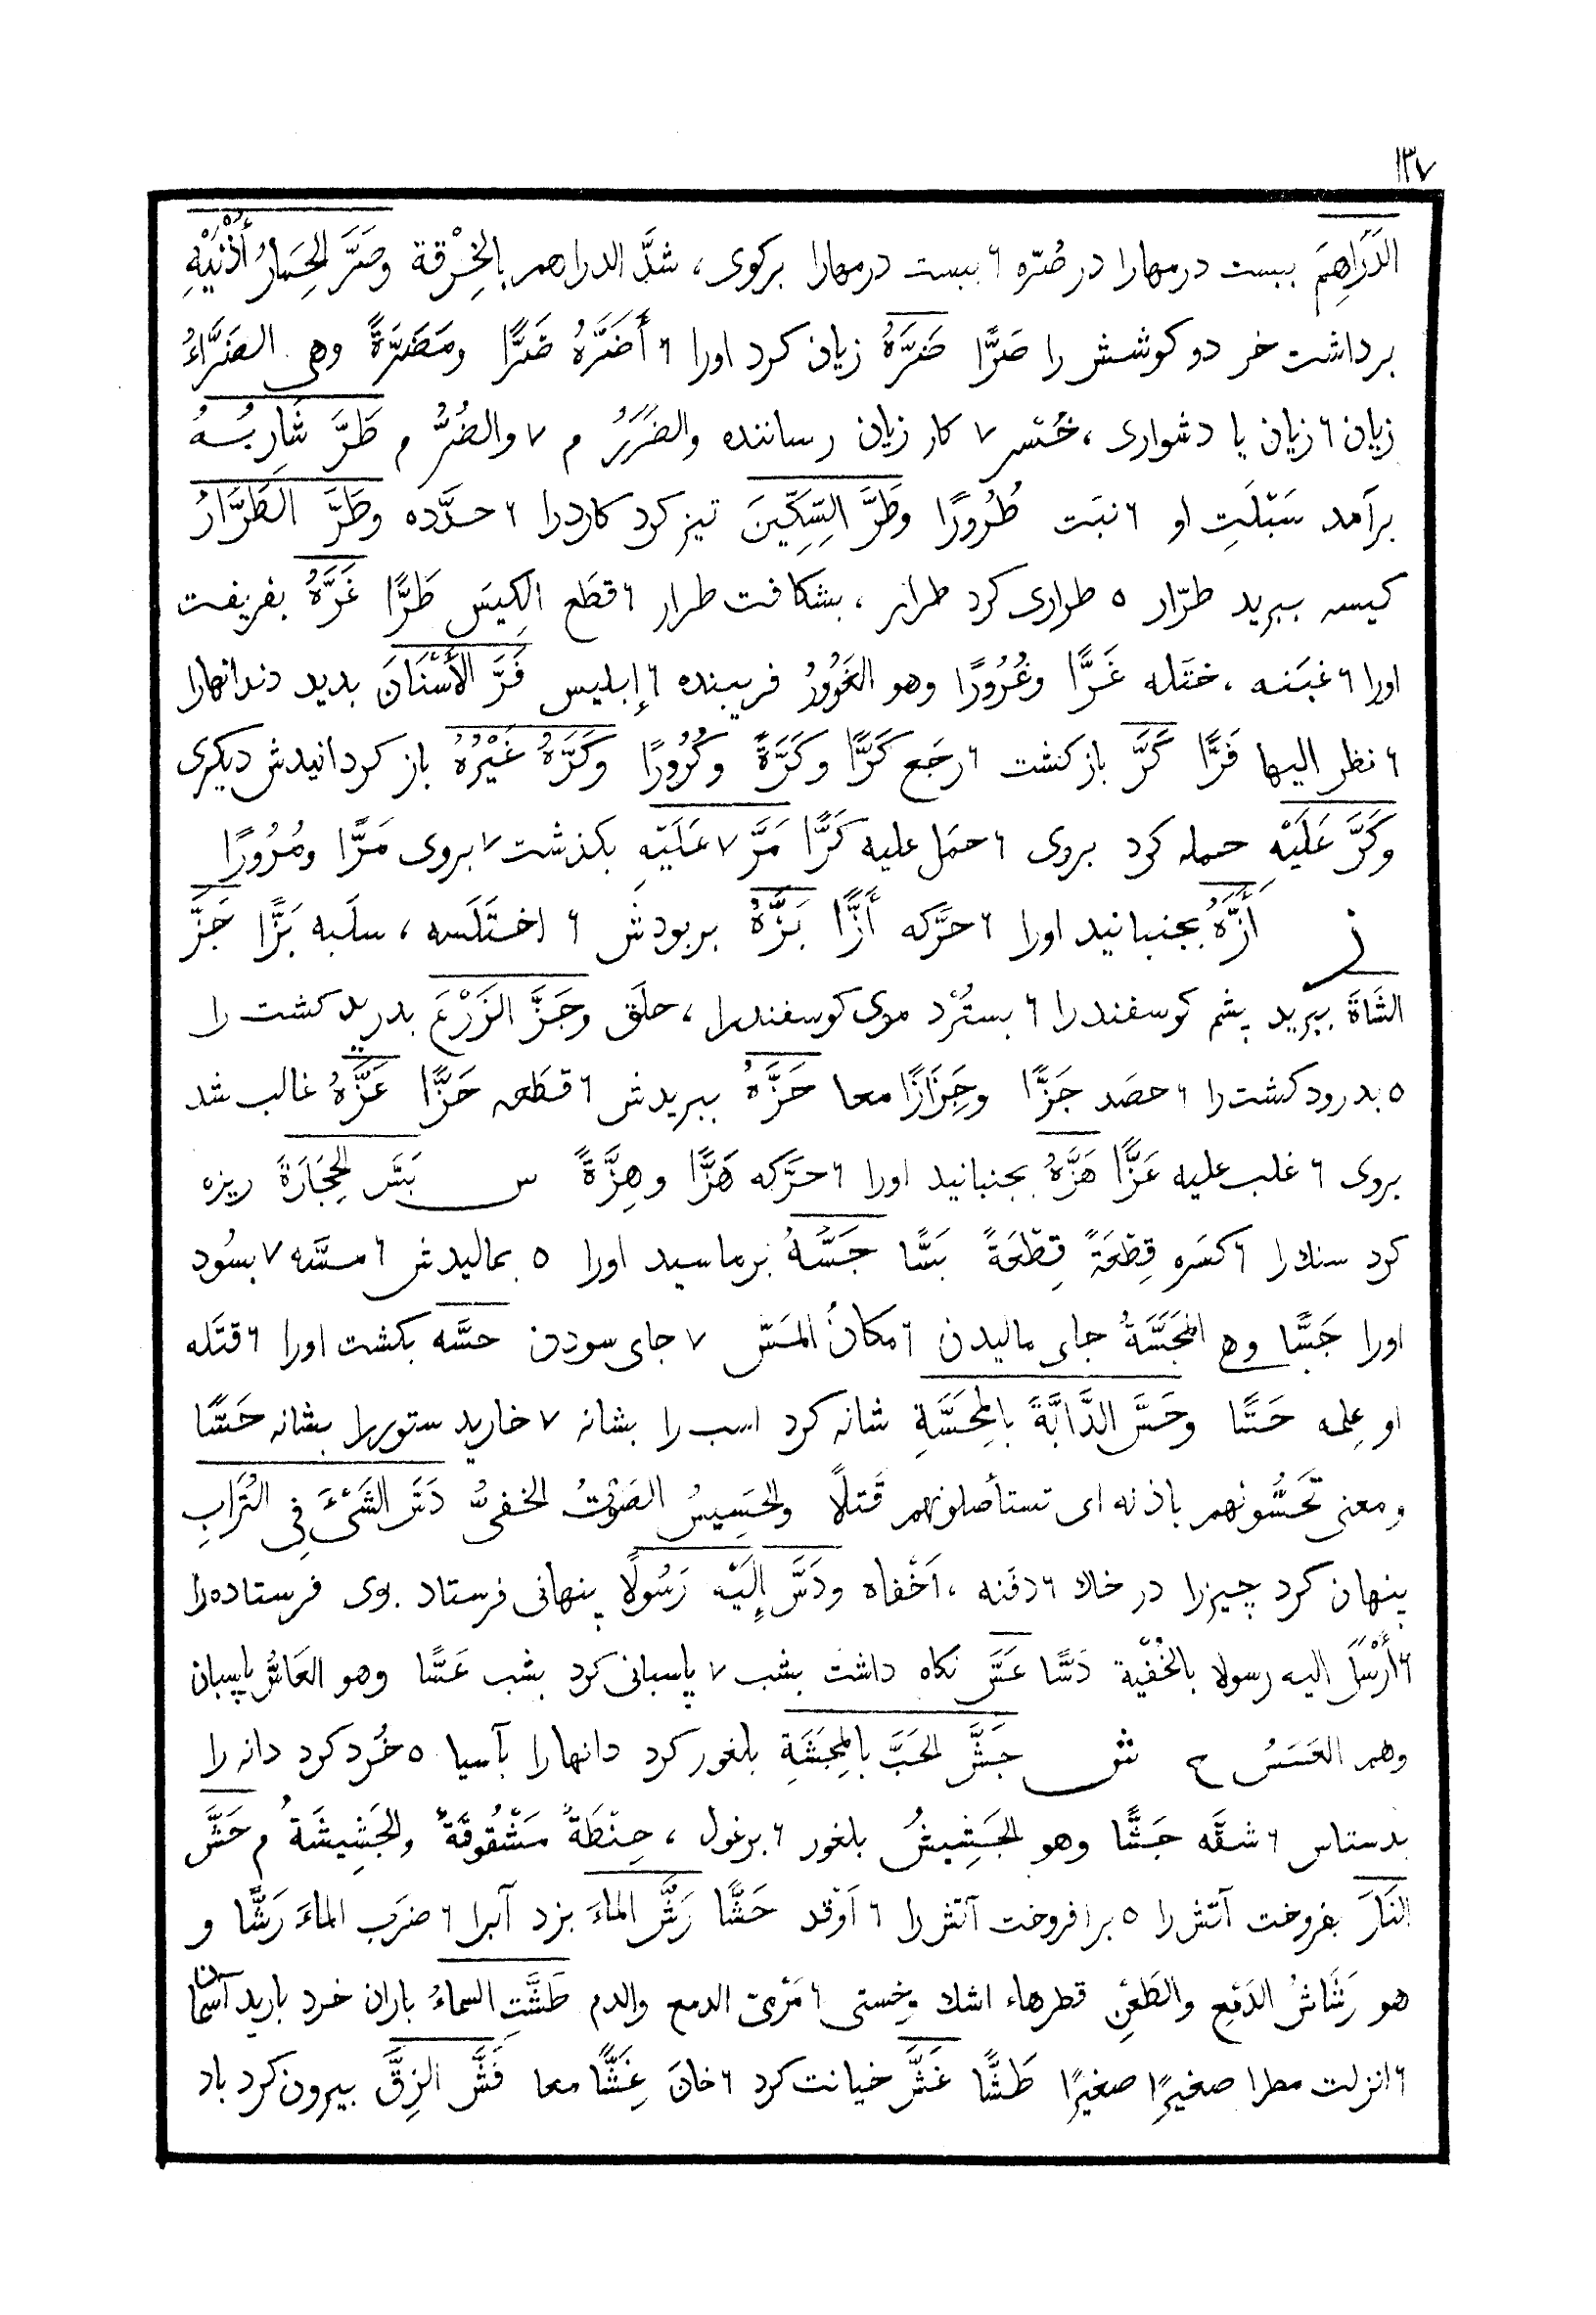 ١٣٧
الدَّرَاهِمَ ببست درمهارا در صُرّه ٦ ببست درمهارا برکوی، شدَّ الدراهم بالخِرْقة وصَرَّ الحِمَارُ أُذُنَيْهِ
برداشت خر دو کوشش را صَرًّا ضَرَّهُ زیان کرد اورا ٦ أَضَرَّهُ ضَرًّا ومَضَرَّةً وهی الضَرَّاءُ
زیان ٦ زیان یا دشواری، خُسْر ٧ کار زیان رساننده والضَرَرُ م ٧ والضُرُّ م طَرَّ شَارِبُهُ
برآمد سَبْلَتِ او ٦ نبَت طُرُورًا وطَرَّ السِّكِّينَ تیز کرد کاردرا ٦ حدَّده وطَرَّ الطَرَّارُ
کیسه ببرید طرّار ٥ طراری کرد طرار، بشکافت طرار ٦ قطَع الکِیسَ طَرًّا غَرَّهُ بفریفت
اورا ٦ غبَنه، ختَله غَرًّا وغُرُورًا وهو الغَرُورُ فریبنده ٦ إبلیس فَرَّ الأَسْنَانَ بدید دندانهارا
٦ نظر الیها فَرًّا كَرَّ بازکشت ٦ رجَع كَرًّا وكَرَّةً وكُرُورًا وكَرَّهُ غَيْرُهُ باز کردانیدش دیکری
وكَرَّ عَلَيْهِ حمله کرد بروی ٦ حمَل علیه كَرًّا مَرَّ ٧ عَلَيْهِ بکذشت ٧ بروی مَرًّا ومُرُورًا
ز أَزَّهُ بجنبانید اورا ٦ حرَّکه أَزًّا بَزَّهُ بربودش ٦ اختَلَسه، سلَبه بَزًّا جَزَّ
الشَاةَ ببرید پشم کوسفندرا ٦ بستُرْد موی کوسفندرا، حلَق وجَزَّ الزَرْعَ بدرید کشت را
٥ بدرود کشت را ٦ حصَد جَزًّا وجِزَازًا معا حَزَّهُ ببریدش ٦ قطَعه حَزًّا عَزَّهُ غالب شد
بروی ٦ غلب علیه عَزًّا هَزَّهُ بجنبانید اورا ٦ حرَّکه هَزًّا وهِزَّةً س بَسَّ الحِجَارَةَ ریزه
کرد سنك را ٦ کسَره قِطْعَةً قِطْعَةً بَسًّا جَسَّهُ برماسید اورا ٥ بمالیدش ٦ مسَّه ٧ بسُود
اورا جَسًّا وهی المَجَسَّةُ جای مالیدن ٦ مکانُ المَسّ ٧ جای سودن حسَّه بکشت اورا ٦ قتَله
او عِلمه حَسًّا وحَسَّ الدَّابَّةَ بالمِحَسَّةِ شانه کرد اسب را بشانه ٧ خارید ستوررا بشانه حَسًّا
ومعنی تَحُسُّونهم باذنه ای تستأصلونهم قَتلًا والحَسِيسُ الصَوْتُ الخفیُّ دَسَّ الشَیْءَ فِی التُرَابِ
پنهان کرد چیزرا در خاك ٦ دفَنه، اَخْفاه ودَسَّ إِلَيْهِ رَسُولًا پنهانی فرستاد بوی فرستاده را
٦ أَرْسَلَ الیه رسولا بالخُفْیة دَسًّا عَسَّ نکاه داشت بشب ٧ پاسبانی کرد بشب عَسًّا وهو العَاسُّ پاسبان
وهم العَسَسُ ج ش جَشَّ الحَبَّ بالمِجَشَّةِ بلغور کرد دانهارا بآسیا ٥ خُرد کرد دانه را
بدستاس ٦ شقَّه جَشًّا وهو الجَشِيشُ بلغور ٦ برغول، حِنْطَةٌ مَشْقُوقَةٌ والجَشِيشَةُ م حَشَّ
النَارَ بفروخت آتش را ٥ برافروخت آتش را ٦ اَوْقد حَشًّا رَشَّ الماءَ بزد آبرا ٦ ضرَب الماءَ رَشًّا و
هو رَشَاشُ الدَمْعِ والطَعْنِ قطرهاء اشك وخستی ٦ مَرْمیّ الدمع والدم طَشَّتِ السماءُ باران خرد بارید آسمان
٦ انزلت مطرا صغیرًا صغیرًا طَشًّا غَشَّ خیانت کرد ٦ خانَ غِشًّا معا فَشَّ الزِقَّ بیرون کرد باد